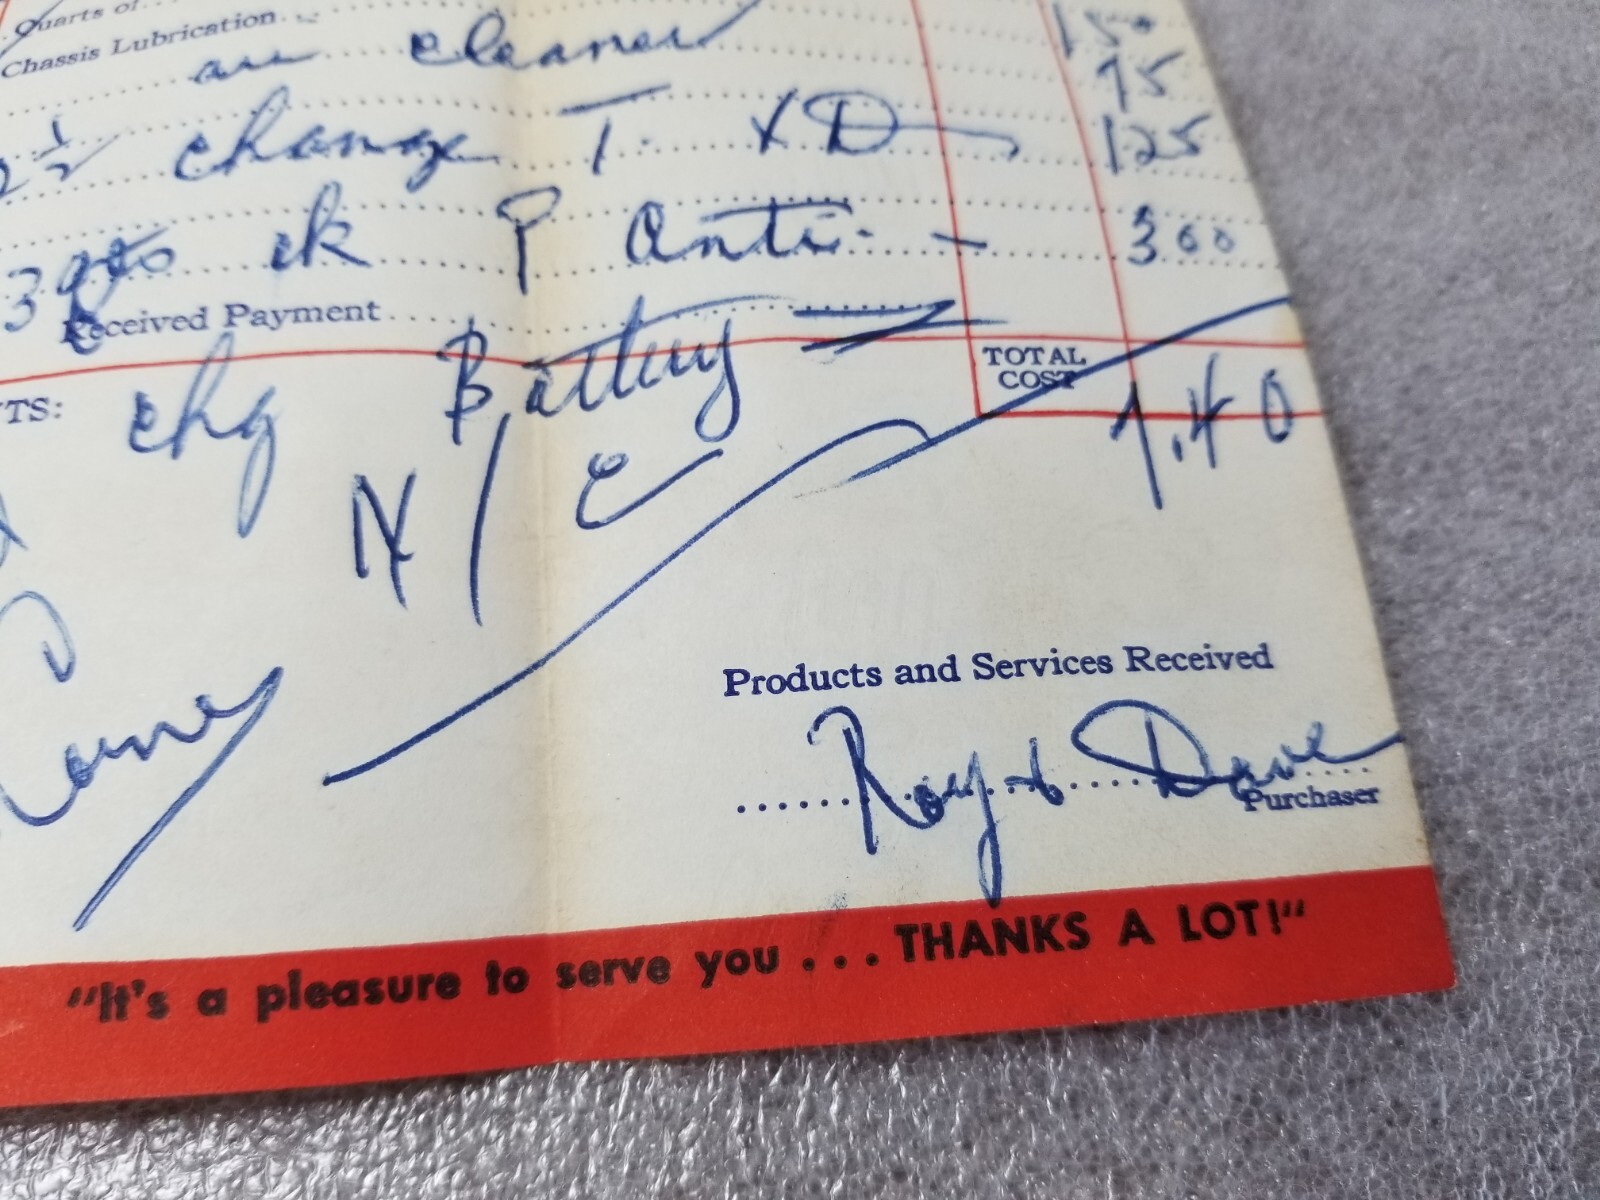 Quarts of
Chassis Lubrication 150
air cleaner 75
2½ change T. x D 125
3 qts ck P Anti - 300
Received Payment
chg Battery
N/C
TOTAL COST 7.40
TS:
Products and Services Received
Roy & Dave
Purchaser
"It's a pleasure to serve you ... THANKS A LOT!"